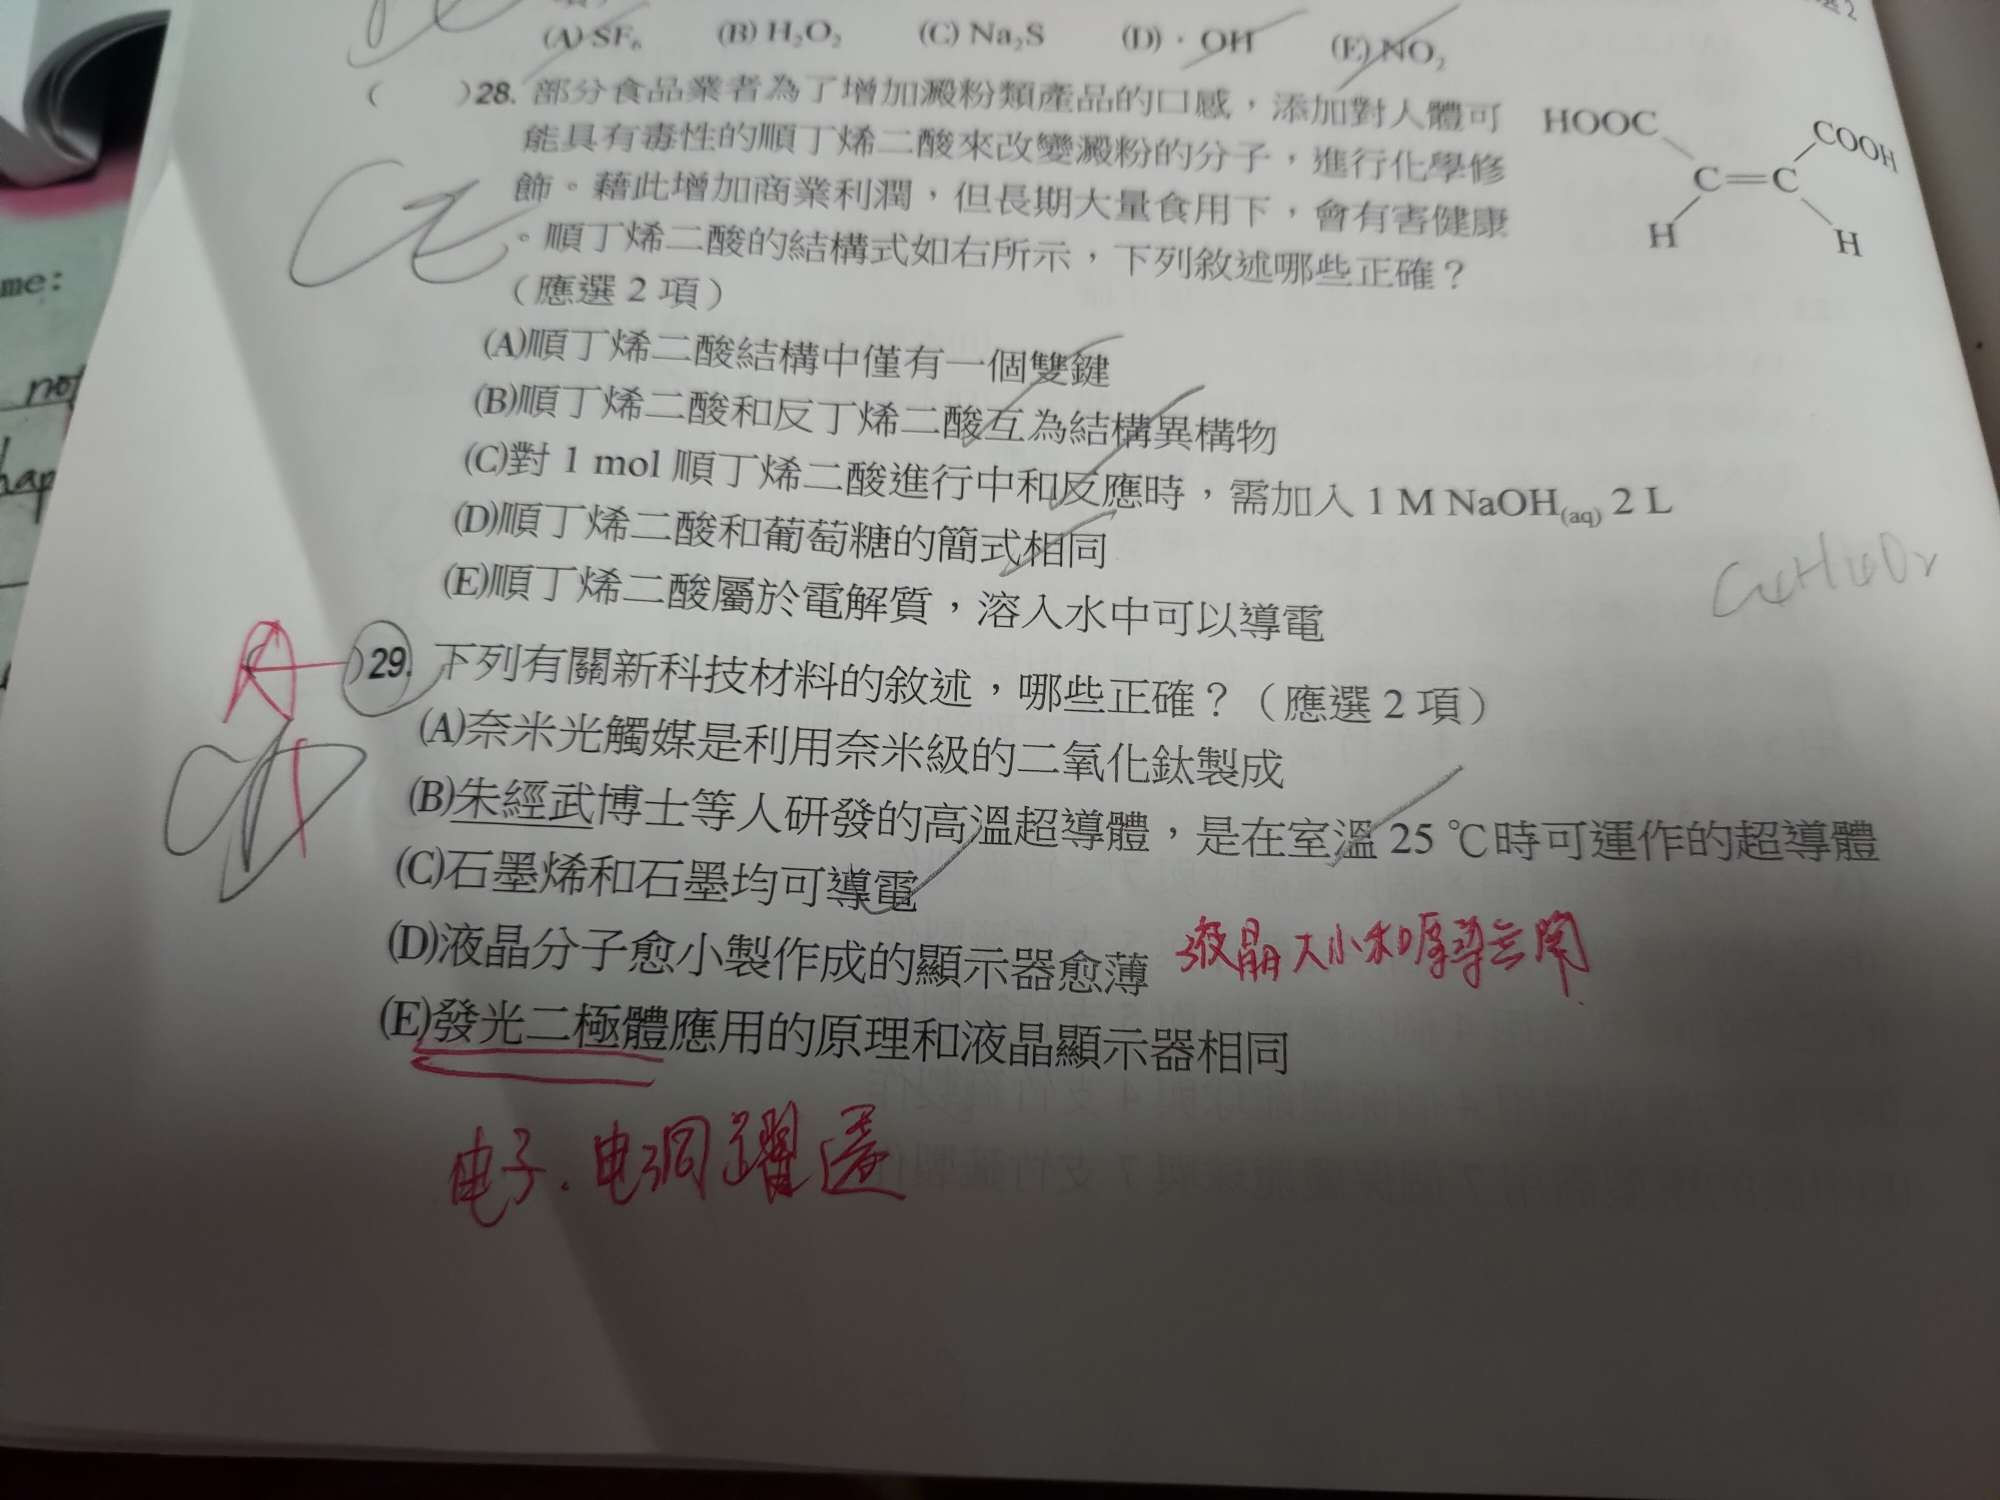 (A) SF₆ (B) H₂O₂ (C) Na₂S (D)·OH (E) NO₂
( )28. 部分食品業者為了增加澱粉類產品的口感，添加對人體可
能具有毒性的順丁烯二酸來改變澱粉的分子，進行化學修
飾。藉此增加商業利潤，但長期大量食用下，會有害健康
。順丁烯二酸的結構式如右所示，下列敘述哪些正確？
（應選 2 項）
HOOC COOH
C=C
H H
CE
(A)順丁烯二酸結構中僅有一個雙鍵
(B)順丁烯二酸和反丁烯二酸互為結構異構物
(C)對 1 mol 順丁烯二酸進行中和反應時，需加入 1 M NaOH(aq) 2 L
(D)順丁烯二酸和葡萄糖的簡式相同
(E)順丁烯二酸屬於電解質，溶入水中可以導電
A
)29. 下列有關新科技材料的敘述，哪些正確？（應選 2 項）
(A)奈米光觸媒是利用奈米級的二氧化鈦製成
(B)朱經武博士等人研發的高溫超導體，是在室溫 25 ℃時可運作的超導體
(C)石墨烯和石墨均可導電
(D)液晶分子愈小製作成的顯示器愈薄
液晶大小和厚薄無關
(E)發光二極體應用的原理和液晶顯示器相同
电子.电洞躍遷
me:
not
hap